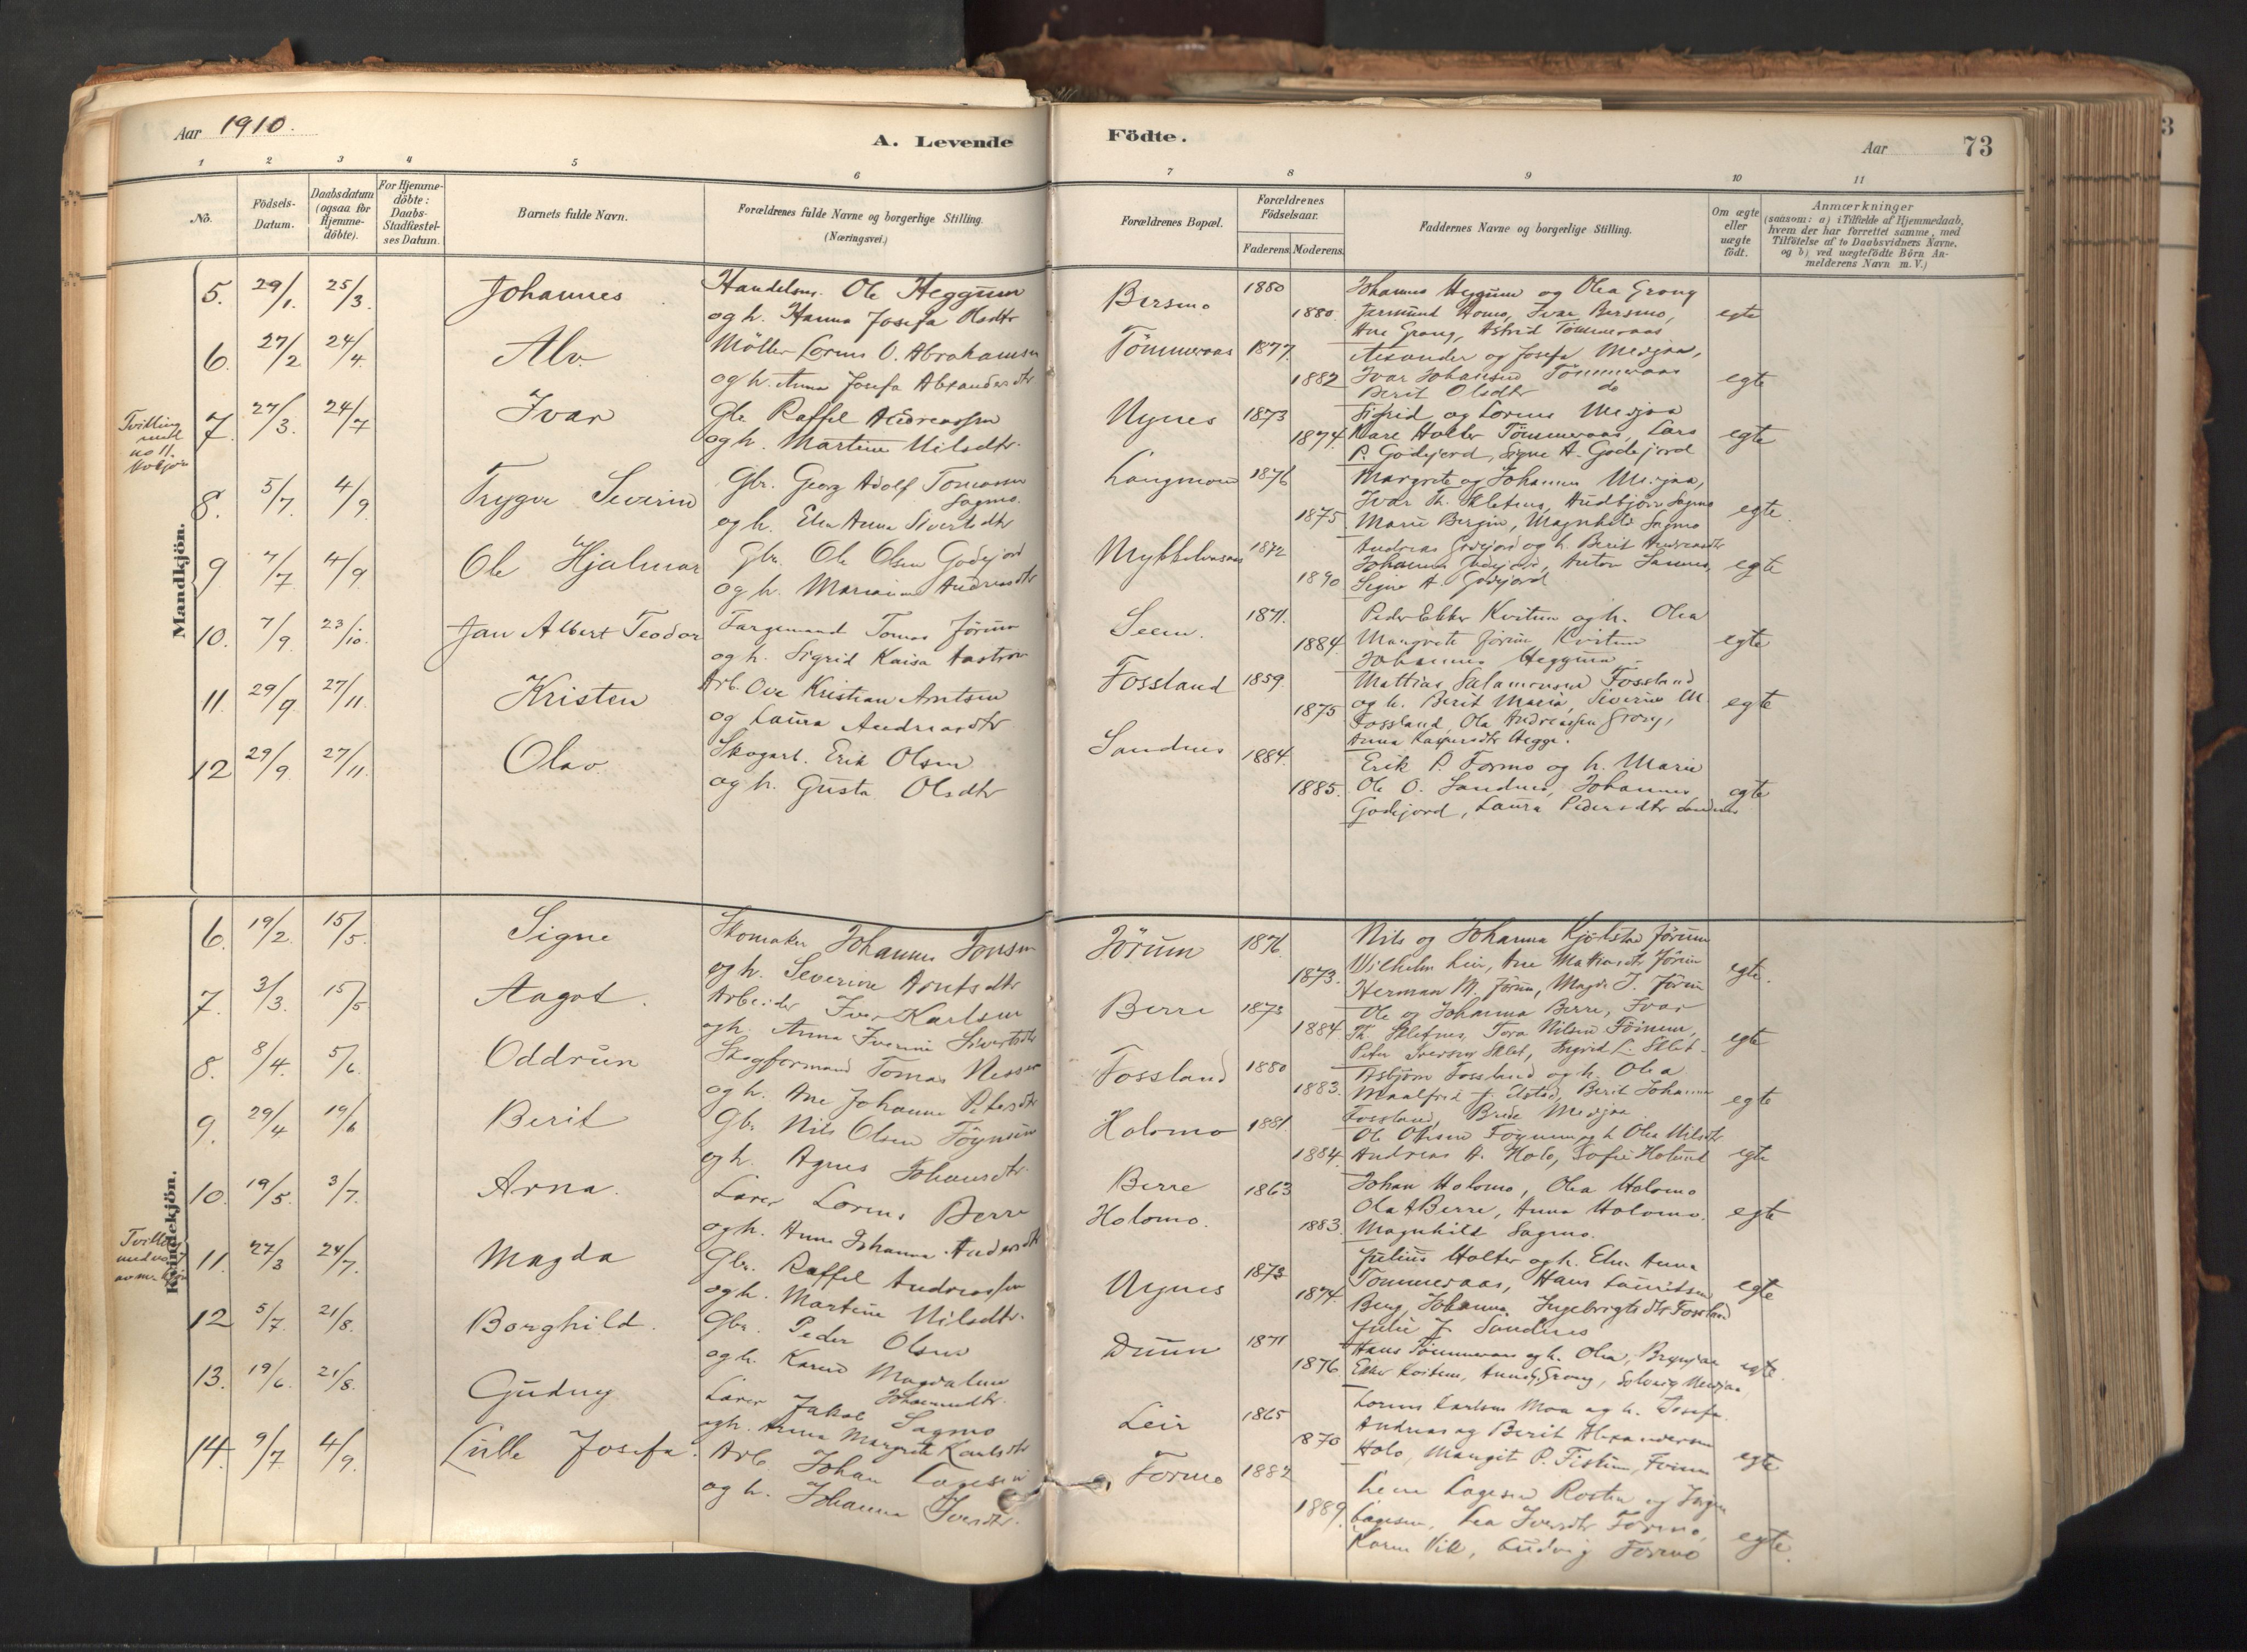 Aar 1910.
A. Levende Födte.
Aar 73
1 2 3 4 5 6 7 8 9 10 11
No.
Födsels-Datum.
Daabsdatum (ogsaa for Hjemme-döbte).
For Hjemme-döbte: Daabs-Stadfæstel-ses Datum.
Barnets fulde Navn.
Forældrenes fulde Navne og borgerlige Stilling.
(Næringsvei.)
Forældrenes Bopæl.
Forældrenes Födselsaar.
Faderens. Moderens.
Faddernes Navne og borgerlige Stilling.
Om ægte eller uægte födt.
Anmærkninger
(saasom: a) i Tilfælde af Hjemmedaab,
hvem der har forrettet samme, med
Tilföielse af to Daabsvidners Navne,
og b) ved uægtefödte Börn An-
melderens Navn m. V.)
Mandkjön.
5. 29/1. 25/3. Johannes
Handelsm. Ole Heggum
og h. Hanna Josefa Olsdtr
Bersmo 1880 1880
Johannes Heggum og Olea Grong
Jermund Homo, Ivar Bersmo,
Ane Grong, Astrid Tömmeraas
egte
6. 27/2 24/4. Alv.
Möller Lorens O. Abrahamsen
og h. Anna Josefa Alexandersdtr
Tömmeraas 1877. 1882
Alexander og Josefa Medjaa,
Ivar Johansen Tömmeraas
Berit Olsdtr do
egte
Tvilling
med
no 11.
7. 27/3. 24/7 Ivar
Gbr. Raffel Andreassen
og h. Martine Nilsdtr.
Nynes 1873 1874
Sigrid og Lorens Medjaa
Kare Holter Tömmeraas, Lars
P. Godejord, Signe A. Godejord
egte
8. 5/7. 4/9. Trygve Severin
Gbr. Georg Adolf Tomassen
Sagmo.
og h. Elen Anna Sivertsdtr
1876 1875
Margrete og Johannes Medjaa,
Ivar Th. Skletnes, Audbjörn Sagmo
Marie Bergin, Magnhild Sagmo
egte.
9 7/7 4/9 Ole Hjalmar
Gbr. Ole Olsen Godejord
og h. Marianne Andreasdtr
1872 1890
Andreas Godejord og h. Berit Andreasdtr
Johannes Godejord, Anton Sannes,
Signe A. Godejord
egte
10. 7/9. 23/10. Jan Albert Teodor
Fargemand Tomas Jörum
og h. Sigrid Kaisa Aaström
Seem. 1871. 1884
Peder Ekker Kvitum og h. Olea
Margrete Jörum, Kvitum
Johannes Heggum
egte
11. 29/9 27/11. Kristen
Arb. Ove Kristian Arntsen
og Laura Andreasdtr
Fossland 1859. 1875
Mattias Salamonsen Fossland
og h. Berit Maria, Severine M.
Fossland, Ole Andreassen Grong,
Anna Kaspersdtr Hegge.
egte
12 29/9. 27/11. Olav.
Skogarb. Erik Olsen
og h. Gusta Olsdtr
Sandnes 1884. 1885.
Erik P. Formo og h. Marie
Ole O. Sandnes, Johannes
Godejord, Laura Pedersdtr Sandnes
egte
Kvindekjön.
6. 19/2. 15/5. Signe
Skomaker Johannes Jonsen
og h. Severine Arntsdtr
Jörum 1876. 1873.
Nils og Johanna Kjölstad Jörum
Wilhelm Leir, Ane Matiasdtr Jörum
Herman M. Jörum, Magda J. Jörum
egte.
7. 3/3. 15/5 Aagot.
Arbeider Iver Karlsen
og h. Anna Ivarine Sivertsdtr
Berre 1873 1884
Ole og Johanna Berre, Ivar
Th. Skletnes, Tora Nilsen Föinum,
Peter Iversen Sklet, Ingrid L. Sklet.
egte
8. 8/4. 5/6. Oddrun
Skogformand Tomas Nesser
og h. Ane Johanna Petersdtr
Fossland 1880 1883.
Asbjörn Fossland og h. Olea
Maalfrid J. Elstad, Berit Johanna
Fossland, Brede Medjaa
egte
9. 29/4 19/6 Berit
Gbr Nils Olsen Föynum
og h. Agnes Johansdtr.
Holomo 1881. 1884.
Ole Olsen Föynum og h Olea Nilsdtr
Andreas A. Holo, Sofie Holand
egte
10. 19/5. 3/7. Arna.
Lærer Lorens Berre
og h. Anna Johanna Andersdtr
Berre
Holomo. 1863 1883.
Johan Holomo, Olea Holomo
Ola A Berre, Anna Holomo.
Magnhild Sagmo.
egte
11. 27/3 24/7. Magda
Gbr. Raffel Andreassen
og h. Martine Nilsdtr.
Nynes 1873 1874.
Julius Holter og h. Elen Anna
Tömmeraas, Hans Lauritsen
Berg, Johanna Ingebrigtsdtr Fossland
Julie J. Sandnes
egte
12 5/7. 21/8. Borghild.
Gbr. Peder Olsen
og h. Karen Magdalene
Johannesdtr.
Duun 1871 1876.
Hans Tömmeraas og h. Olea, Brynjar
Ekker Kvitum, Grong, Solveig Medjaa
egte.
13. 19/6. 21/8. Gudny
Lærer Jakob Sagmo
og h. Anna Margrete Karlsdtr
Leir 1865 1870
Lorens Karlsen Moa og h. Josefa.
Andreas og Berit Alexandersen
Holo, Mangit P. Fiskum,
egte
14. 9/7 4/9. Lulle Josefa.
Arb. Johan Lagesen
og h. Johanna Iversdtr.
Formo 1882 1889
Lene Lagesen Rosten og
Lagesen, Lea Iversdtr Formo,
Karen Vik, Ludvig Formo
egte.